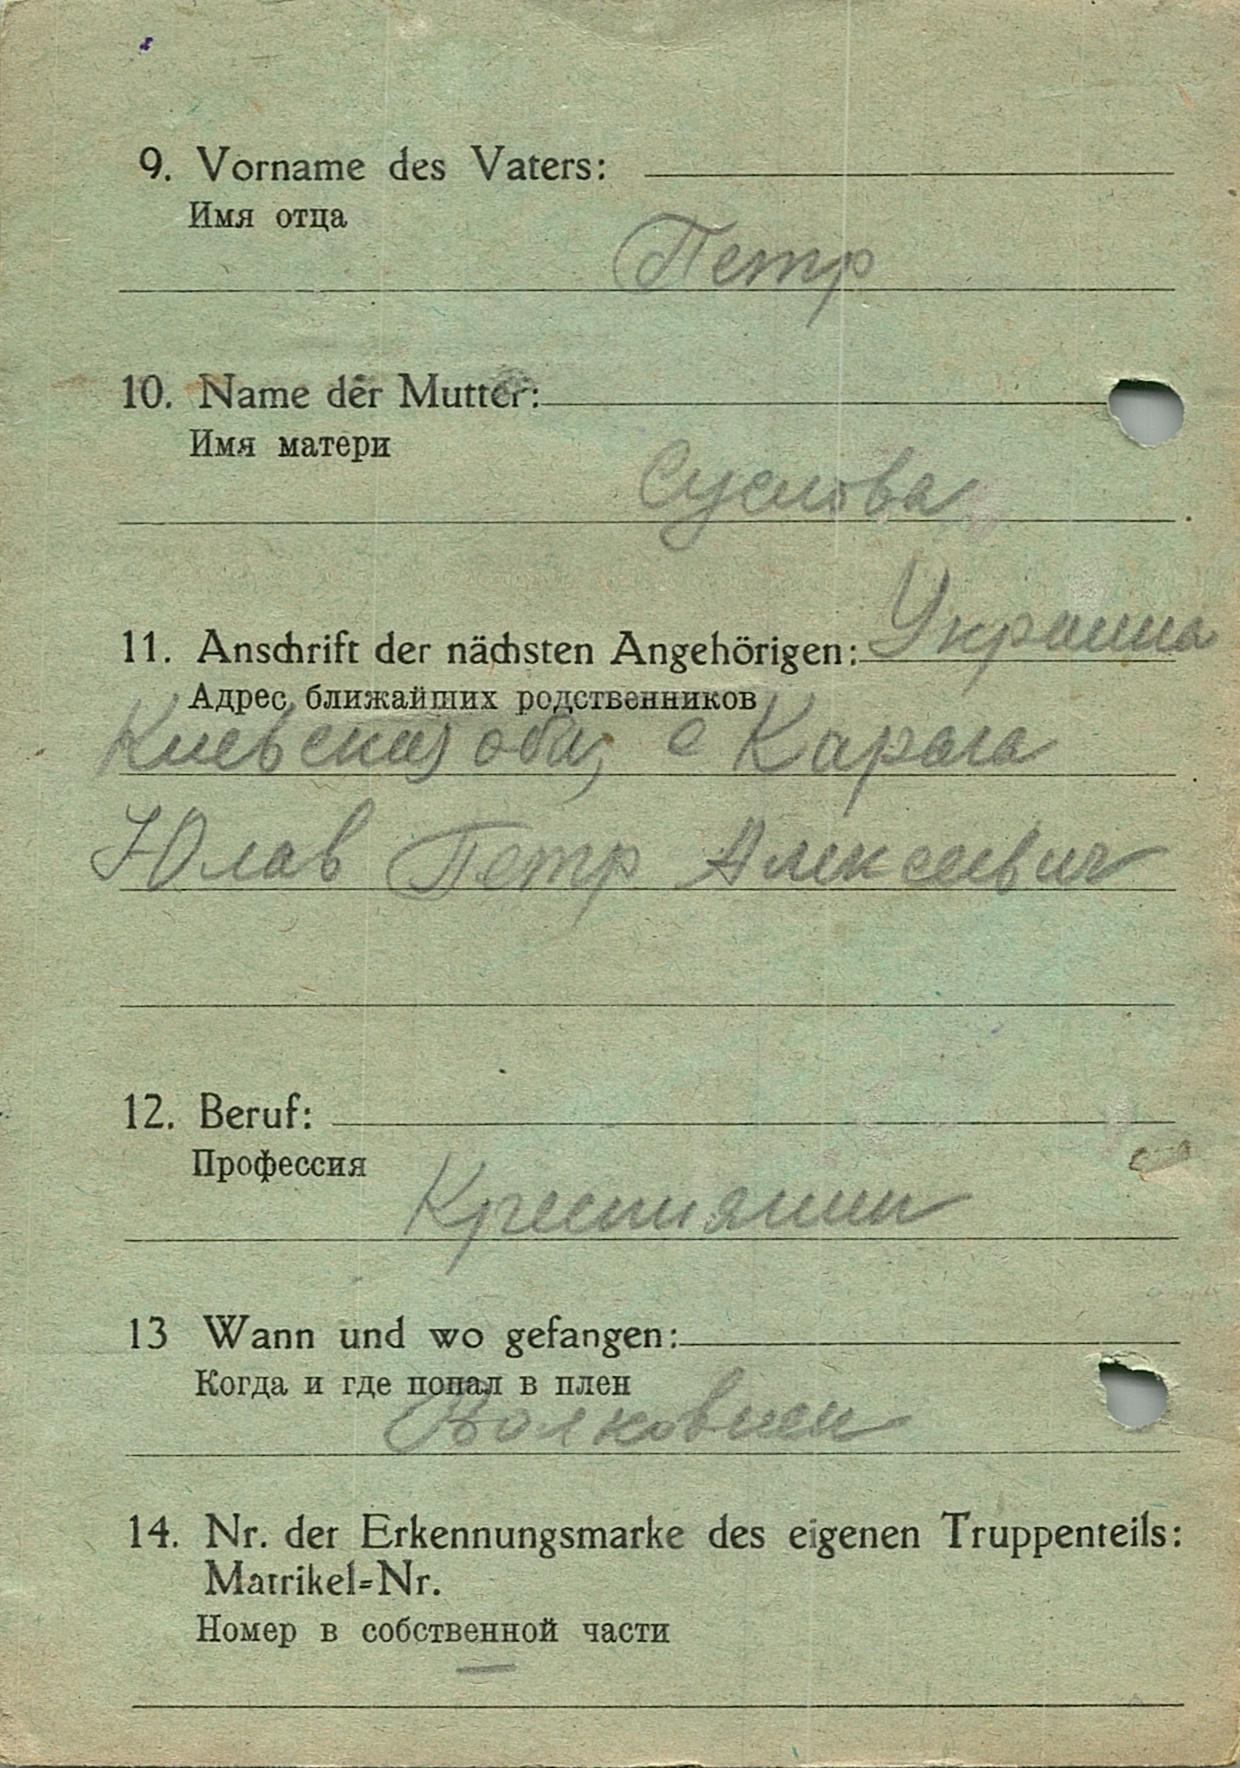 9. Vorname des Vaters:
Имя отца
Петр
10. Name der Mutter:
Имя матери
Суслова
Украина
11. Anschrift der nächsten Angehörigen:
Адрес ближайших родственников
Киевская с Карага
Юлав Петр Алексеевич
12. Beruf:
Профессия
13 Wann und wo gefangen:
Когда и где попал в плен
14. Nr. der Erkennungsmarke des eigenen Truppenteils:
Matrikel=Nr.
Номер в собственной части
—